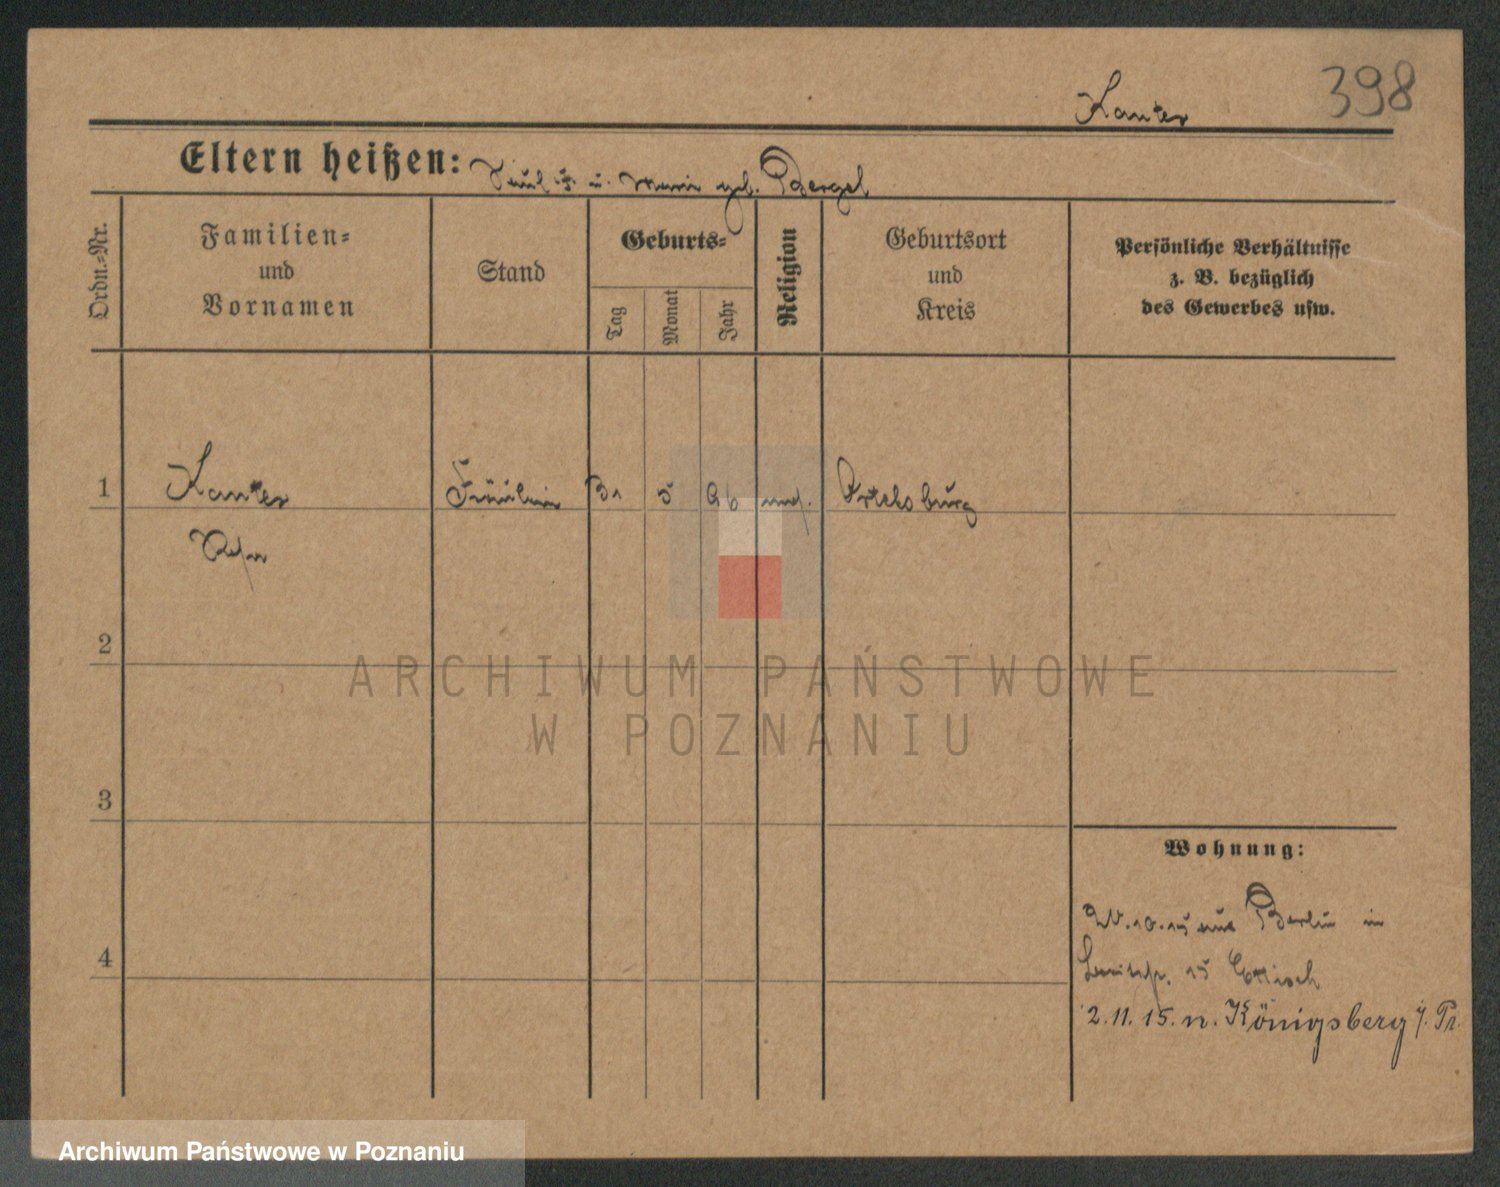 398
Kanter
Eltern heißen: Paul u. Marie geb. Bergel
Ordn.=Nr.
Familien=
und
Vornamen
Stand
Geburts=
Tag
Monat
Jahr
Religion
Geburtsort
und
Kreis
Persönliche Verhältnisse
z. B. bezüglich
des Gewerbes usw.
1
Kanter
Fräulein
5
96
Ortelsburg
2
3
4
Wohnung:
10.15 aus Berlin in
15
2.11.15. n. Königsberg i. Pr.
ARCHIWUM PAŃSTWOWE
W POZNANIU
Archiwum Państwowe w Poznaniu